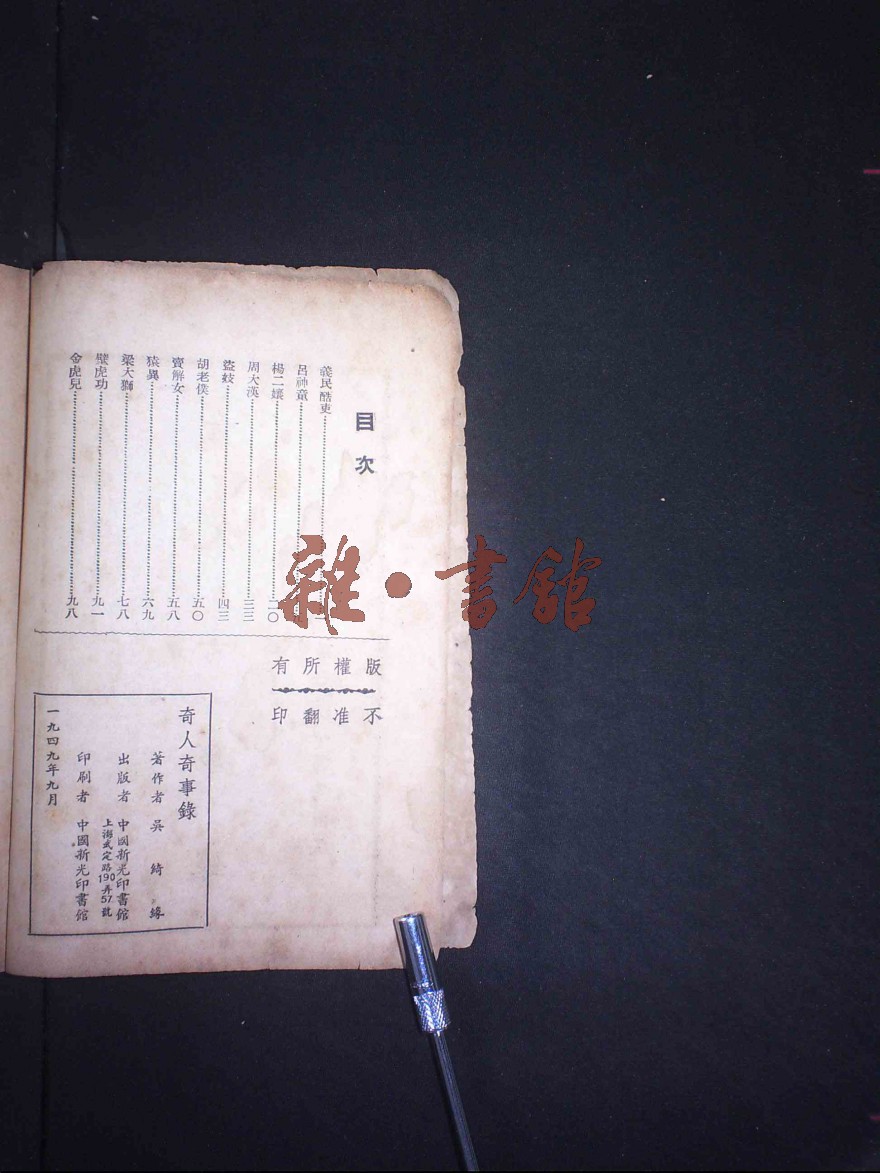 目次
義民酷吏
呂神童
楊二孃
周大漢……三三
盜妓……四三
胡老僕……五〇
賣解女……五八
猿異……六九
梁大獅……七八
壁虎功……九一
金虎兒……九八
版權所有
不准翻印
奇人奇事錄
著作者 吳綺緣
出版者 中國新光印書館
上海武定路190弄57號
印刷者 中國新光印書館
一九四九年九月
雜·書館